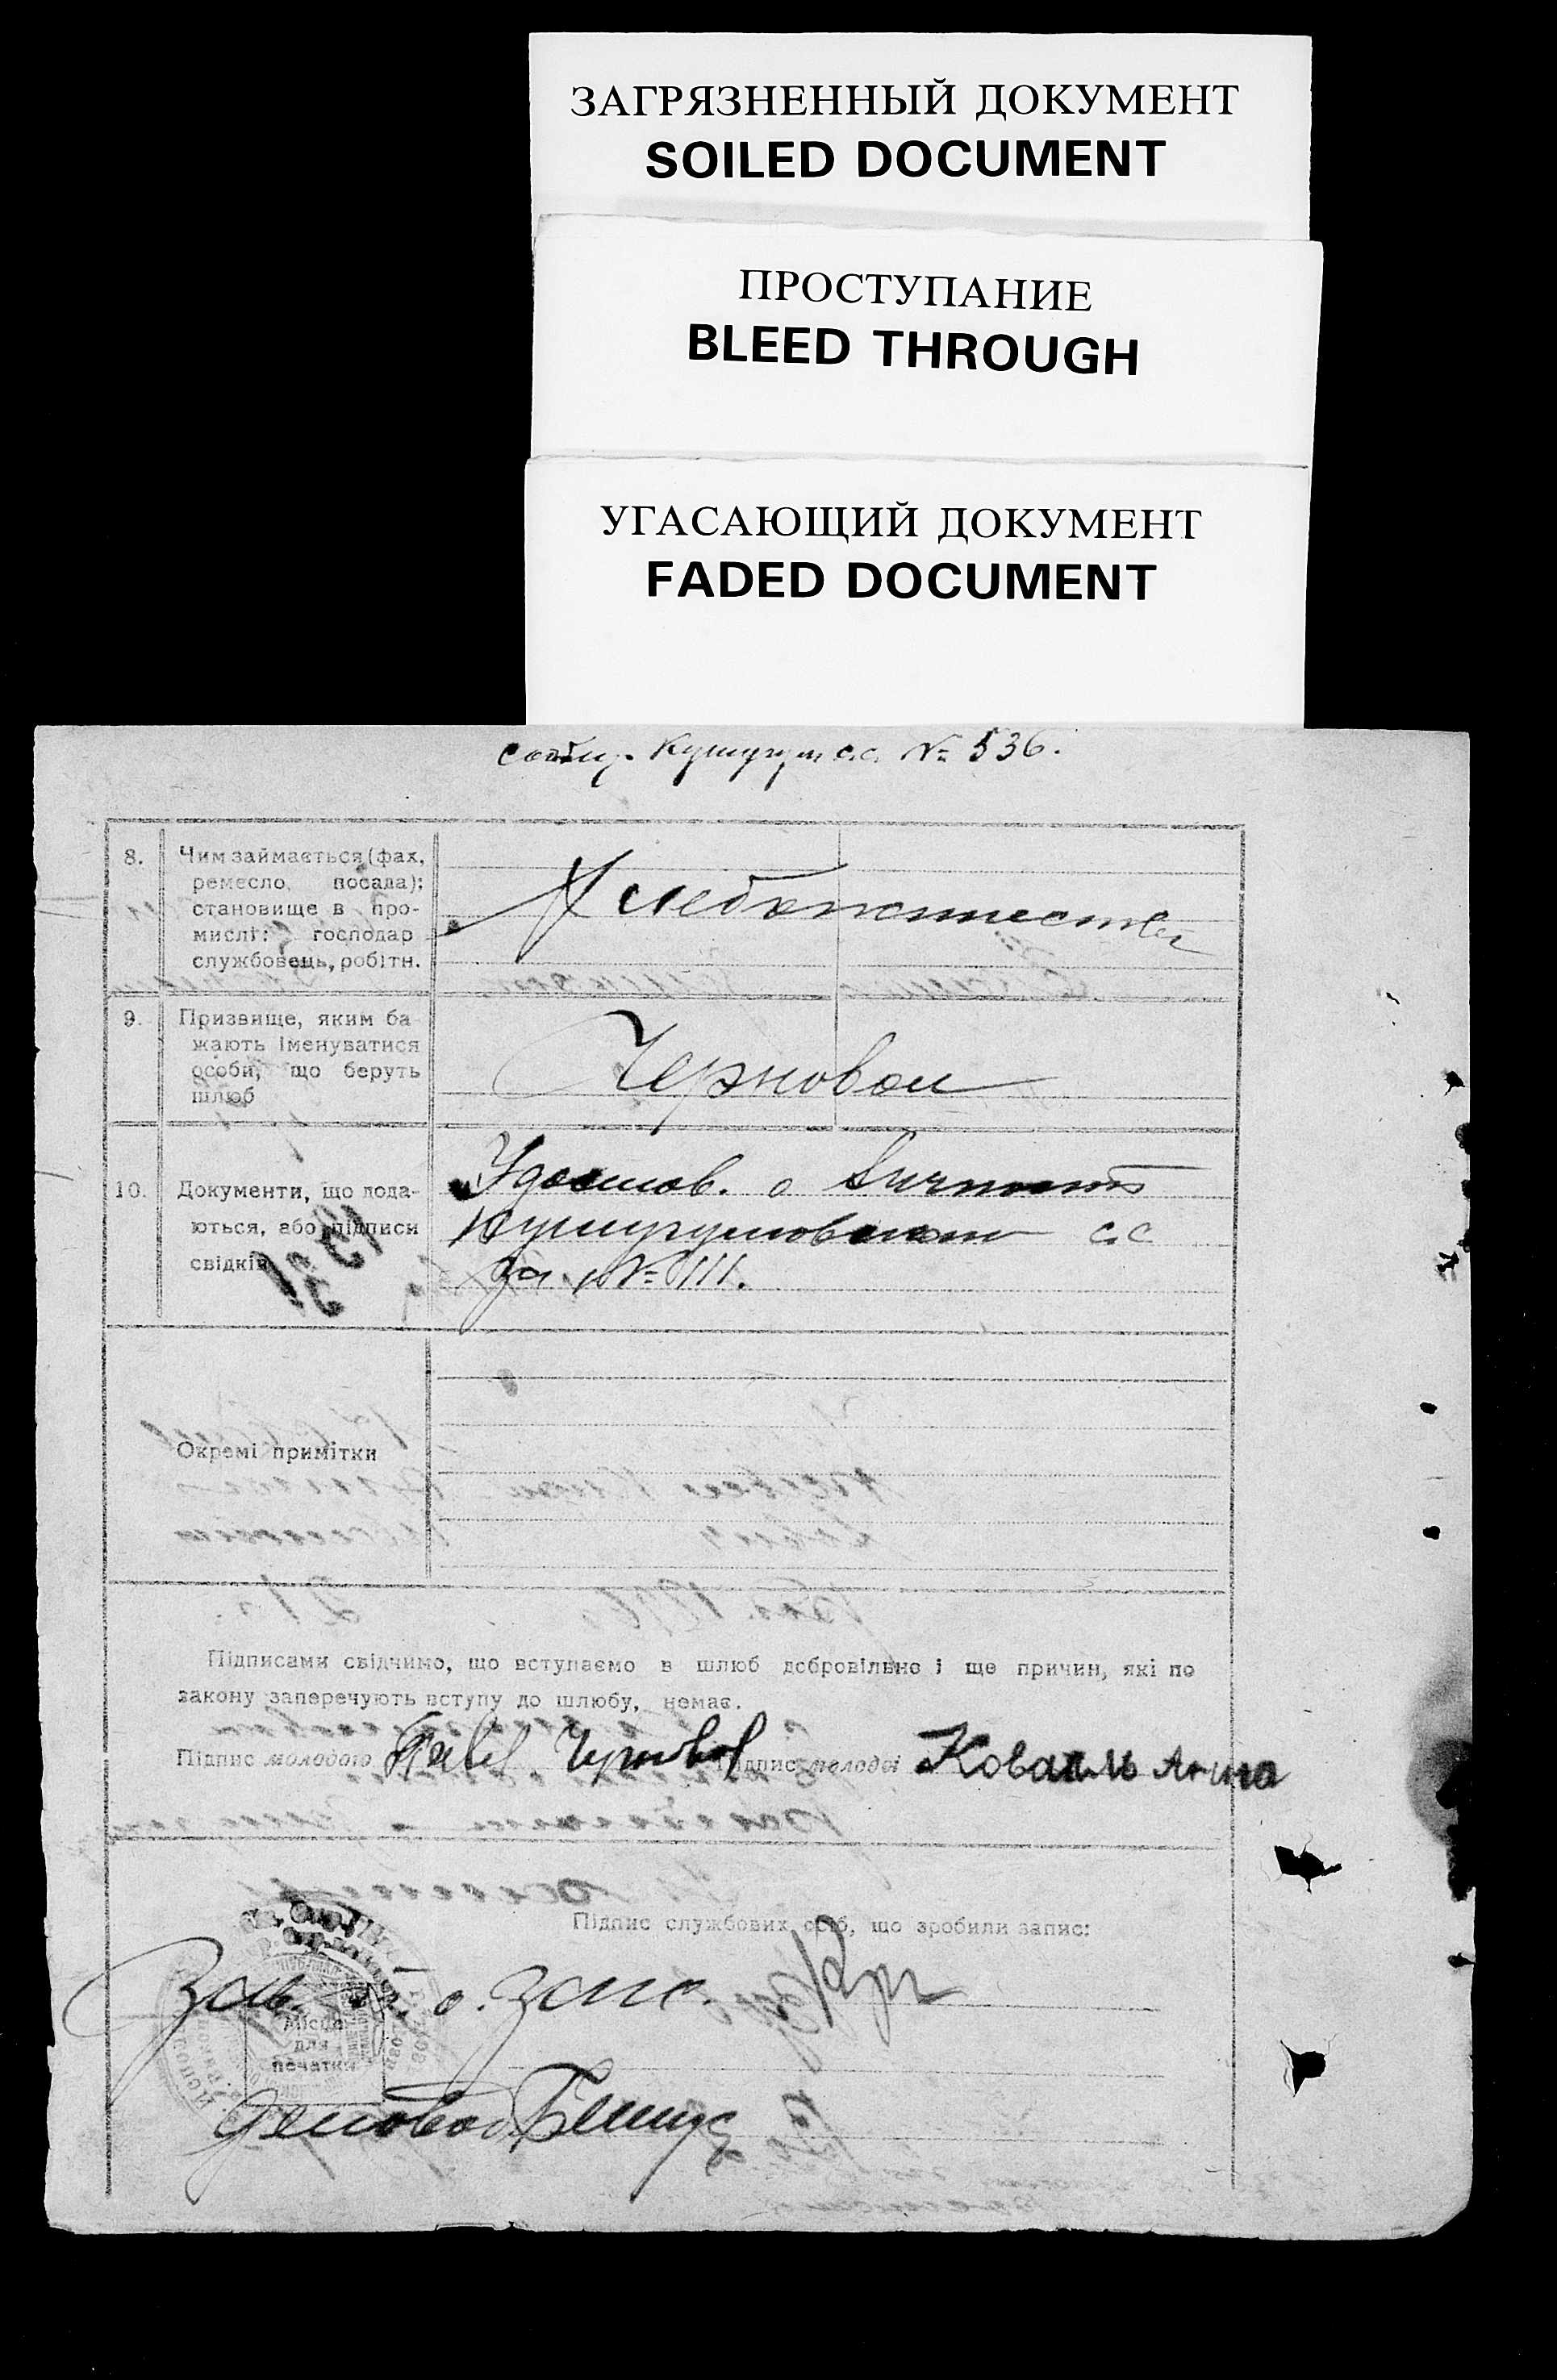 ЗАГРЯЗНЕННЫЙ ДОКУМЕНТ
SOILED DOCUMENT
ПРОСТУПАНИЕ
BLEED THROUGH
УГАСАЮЩИЙ ДОКУМЕНТ
FADED DOCUMENT
Кушугум с.с. № 536.
8. Чим займається (фах,
ремесло, посада);
становище в про-
мислі: господар
службовець, робітн.
Хлебопашество
9. Призвище, яким ба-
жають іменуватися
особи, що беруть
шлюб
Чернового
10. Документи, що пода-
ються, або підписи
свідків
Удостов. о личности
Кушугумовского с.с
за № 111.
Окремі примітки
Підписами свідчимо, що вступаємо в шлюб добровільно і ще причин, які по
закону заперечують вступу до шлюбу, немає.
Підпис молодого Павел Чернов Підпис молодої Коваль Анна
Підпис службових осіб, що зробили запис:
Зав. о. запс.
Місце
для
печатки
Деловод.